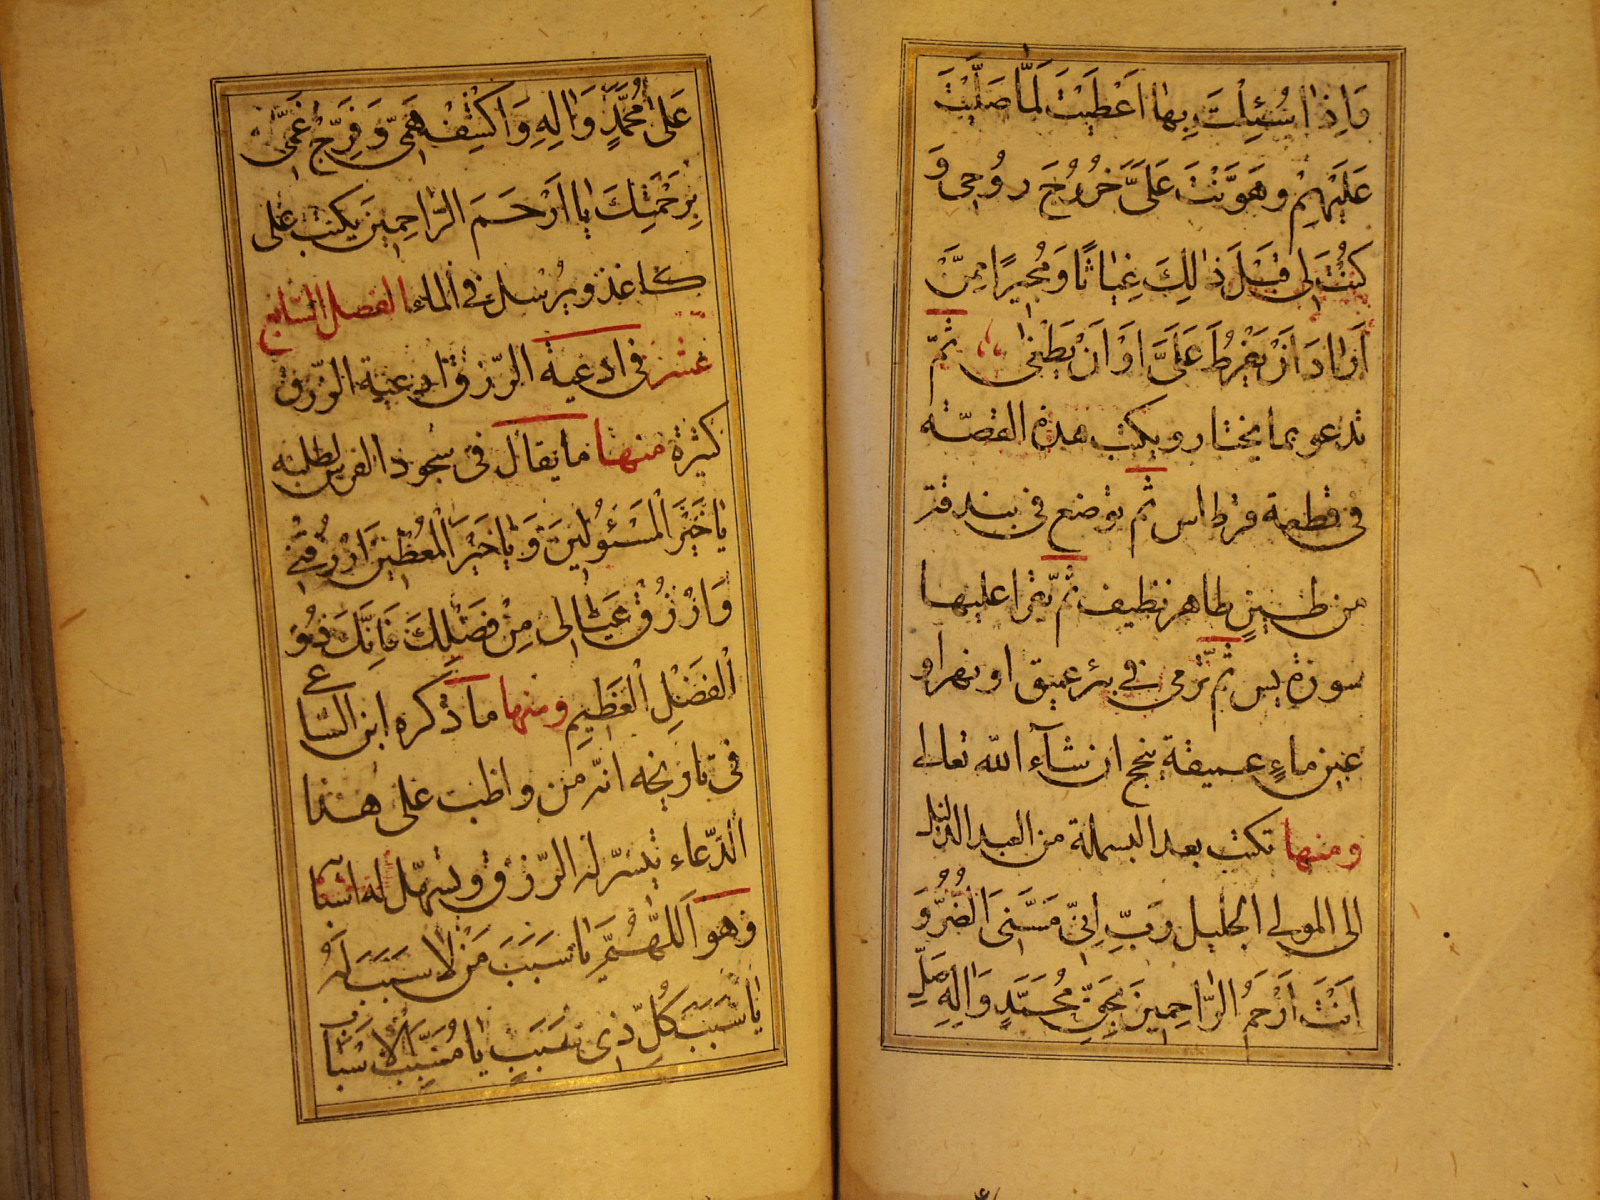 وَاِذٰا سُئِلْتَ بِهٰا اَعْطَيْتَ لَمّٰا صَلَّيْتَ
عَلَيْهِمْ وهَوَّنْتَ عَلَىَّ خُرُوُجَ رُوُحِى وَ
كُنْتَ لى قَبْلَ ذٰلِكَ غِيٰاثًا وَمُجِيرًا مِمَّنْ
اَرٰادَ اَنْ يَفْرُطَ عَلَىَّ اَوْ اَنْ يَطْغىٰ ثمّ
تدعو بما يختار ويكتب هذه القصّة
فى قطعة قرطاس ثم توضع فى بندقة
من طينٍ طاهر نظيف ثم يقرا عليها
سورة يس ثم ترمى فى بئر عميق او نهر او
عين ماءٍ عميقة ينجح ان شآء اللّه تعالى
ومنها تكتب بعد البسملة من العبد الذليل
الى المولى الجليل رَبِّ اِنّى مَسَّنِىَ الضُرُّ وَ
اَنْتَ اَرْحَمُ الرّٰاحِمِينَ بِحَقِّ مُحَمَّدٍ وَاٰلِهِ صَلِّ
عَلىٰ مُحَمَّدٍ وَاٰلِهِ وَاكْشِفْ هَمّى وَفَرِّجْ غَمّى
بِرَحْمَتِكَ يٰا اَرْحَمَ الرّٰاحِمِينَ يكتب على
كاغذ ويُرْسل فى الماء الفصل السّابع
عشر فى ادعية الرّزق ادعية الرّزق
كثيرة منها ما يقال فى سجود الفرض لطلبه
يٰا خَيْرَ الْمَسْئُولينَ وَيٰا خَيْرَ الْمُعْطينَ ارْزُقْنى
وَارْزُقْ عَيٰالى مِنْ فَضْلِكَ فَاِنَّكَ ذُو
الْفَضْلِ الْعَظيمِ ومنها ما ذكره ابن السّاعى
فى تاريخه انّه من واظب على هذا
الدّعاء تيسّر له الرّزق وتسهّل له اسبابه
وهو اَللّٰهُمَّ يٰا سَبَبَ مَنْ لا سَبَبَ لَهُ
يٰا سَبَبَ كُلِّ ذى سَبَبٍ يٰا مُسَبِّبَ الْاَسْبٰابِ